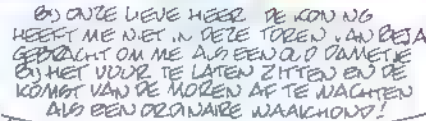 BIJ ONZE LIEVE HEER DE KONING
HEEFT ME NIET IN DEZE TOREN VAN BEJA
GEBRACHT OM ME ALS EEN OUD DAMETJE
BIJ HET VUUR TE LATEN ZITTEN EN DE
KOMST VAN DE MOREN AF TE WACHTEN
ALS EEN ORDINAIRE WAAKHOND!